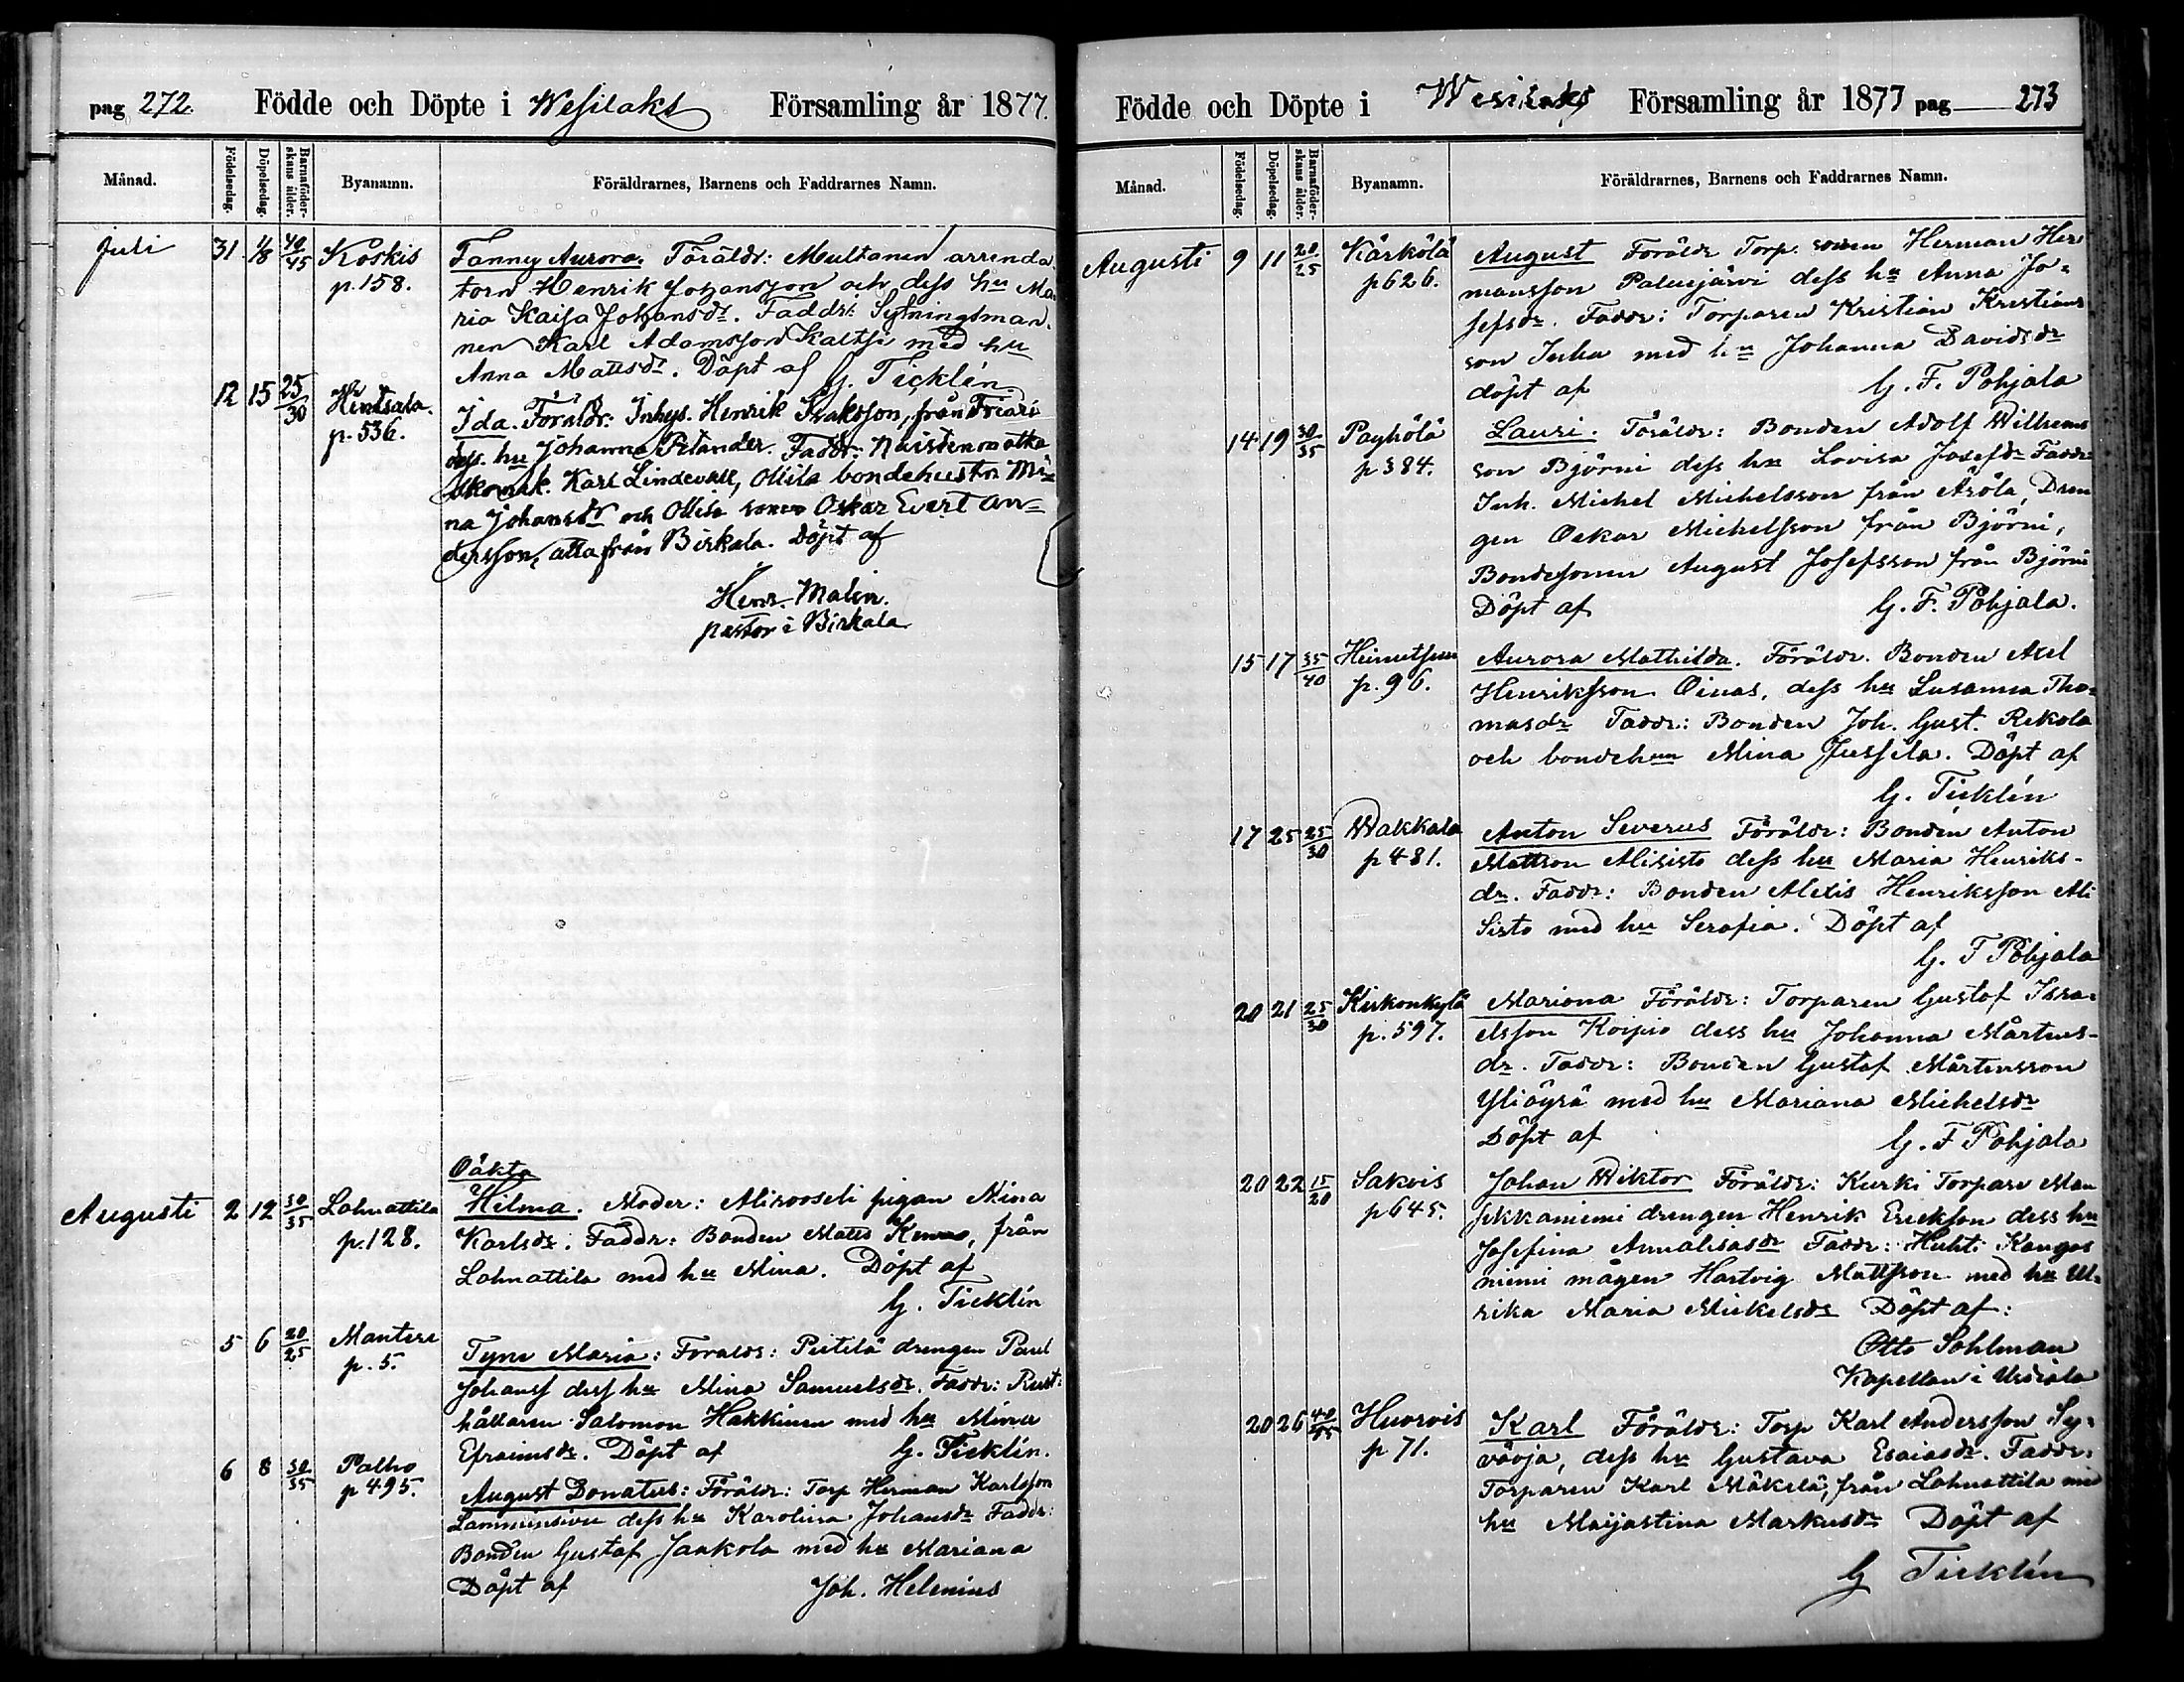 pag 272. Födde och Döpte i Wesilaks Församling år 1877.
Månad. Födelsedag. Döpelsedag. Barnaföderskans ålder. Byanamn. Föräldrarnes, Barnens och Faddrarnes Namn.
Juli 31 1/8 40/45 Koskis Fanny Aurora. Föräldr: Multanen arrenda
p. 158. torn Henrik Johansson och dess hu Ma
ria Kaisa Johansdr. Faddr: Syningsman
nen Karl Adamsson Kaltsi med hu
Anna Mattsdr. Döpt af G. Ticklén.
12 15 25/30 Hintsala Ida. Föräldr: Inhys. Henrik Isaksson, från
p. 536. dess hu Johanna Pitander. Faddr:
Karl Lindevall, Ollila bondehustru Mi=
na Johansdr och Ollila sonen Oskar Evert An=
dersson, alla från Birkala. Döpt af
Henr. Malin.
pastor i Birkala
Oäkta
Augusti 2 12 30/35 Lahnattila Hilma. Moder: Alirooseli pigan Mina
p. 128. Karlsdr. Faddr: Bonden Matts Kennas, från
Lahnattila med hu Mina. Döpt af
G. Ticklén
5 6 20/25 Mantere Tyne Maria: Föraldr: Pietilä drengen Paul
p. 5. Johanss dess hu Mina Samuelsdr. Faddr: Rust:
hållaren Salomon Hakkinen med hu Mina
Efraimsdr. Döpt af G. Ticklén.
6 8 30/35 Palho August Donatus: Föräldr: Torp Herman Karlsson
p 495. Lamminsivu dess hu Karolina Johansdr Faddr:
Bonden Gustaf Jaakola med hu Mariana
Döpt af Joh. Helenius
Födde och Döpte i Wesilaks Församling år 1877 pag 273
Månad. Födelsedag. Döpelsedag. Barnaföderskans ålder. Byanamn. Föräldrarnes, Barnens och Faddrarnes Namn.
Augusti 9 11 20/25 Kärkölä August Föräldr Torp. sonen Herman Her
p 626. mansson Palusjärvi dess hu Anna Jo=
sefsdr. Faddr: Torparen Kristian Kristians
son Inha med hu Johanna Davidsdr
döpt af G. F. Pohjala
14 19 30/35 Pöyhölä Lauri. Föräldr: Bonden Adolf Wilhelms
p 384. son Björni dess hu Lovisa Josefsdr Faddr:
Inh. Michel Michelsson från Äsölä, Dren
gen Oskar Michelsson från Björni,
Bondesonen August Josefsson från Björni
Döpt af G. F. Pohjala.
15 17 35/40 Heinutsuu Aurora Mathilda. Föräldr. Bonden Axel
p. 96. Henriksson Oinas, dess hu Susanna Tho=
masdr Faddr: Bonden Joh. Gust. Rekola
och bondehun Mina Jussila. Döpt af
G. Ticklén
17 25 25/30 Wakkala Anton Severus Föräldr: Bonden Anton
p 481. Mattson Alisisto dess hu Maria Henriks-
dr. Faddr: Bonden Alexis Henriksson Ali
Sisto med hu Serafia. Döpt af
G. F Pohjala
20 21 25/30 Kirkonkylä Mariana Föräldr: Torparen Gustaf Isra=
p. 597. elsson Koipio dess hu Johanna Mårtens-
dr. Faddr: Bonden Gustaf Mårtensson
Yliäyrä med hu Mariana Michelsdr
Döpt af G. F Pohjala
20 22 15/20 Sakois Johan Wiktor Föräldr: Kurki Torpare Man
p 645. sikkaniemi drengen Henrik Erickson dess hu
Josefina Annalisasdr Faddr: Huhti Kangas
niemi mågen Hartvig Mattsson med hu Ul=
rika Maria Mickelsdr Döpt af:
Otto Sohlman
Kapellan i Urdiala
20 26 40/45 Huorvis Karl Föräldr: Torp Karl Andersson Sy=
p 71. väoja, dess hu Gustava Esaiasdr. Faddr:
Torparen Karl Mäkelä, från Lahnattila med
hu Maijastina Markusdr Döpt af
G Ticklén